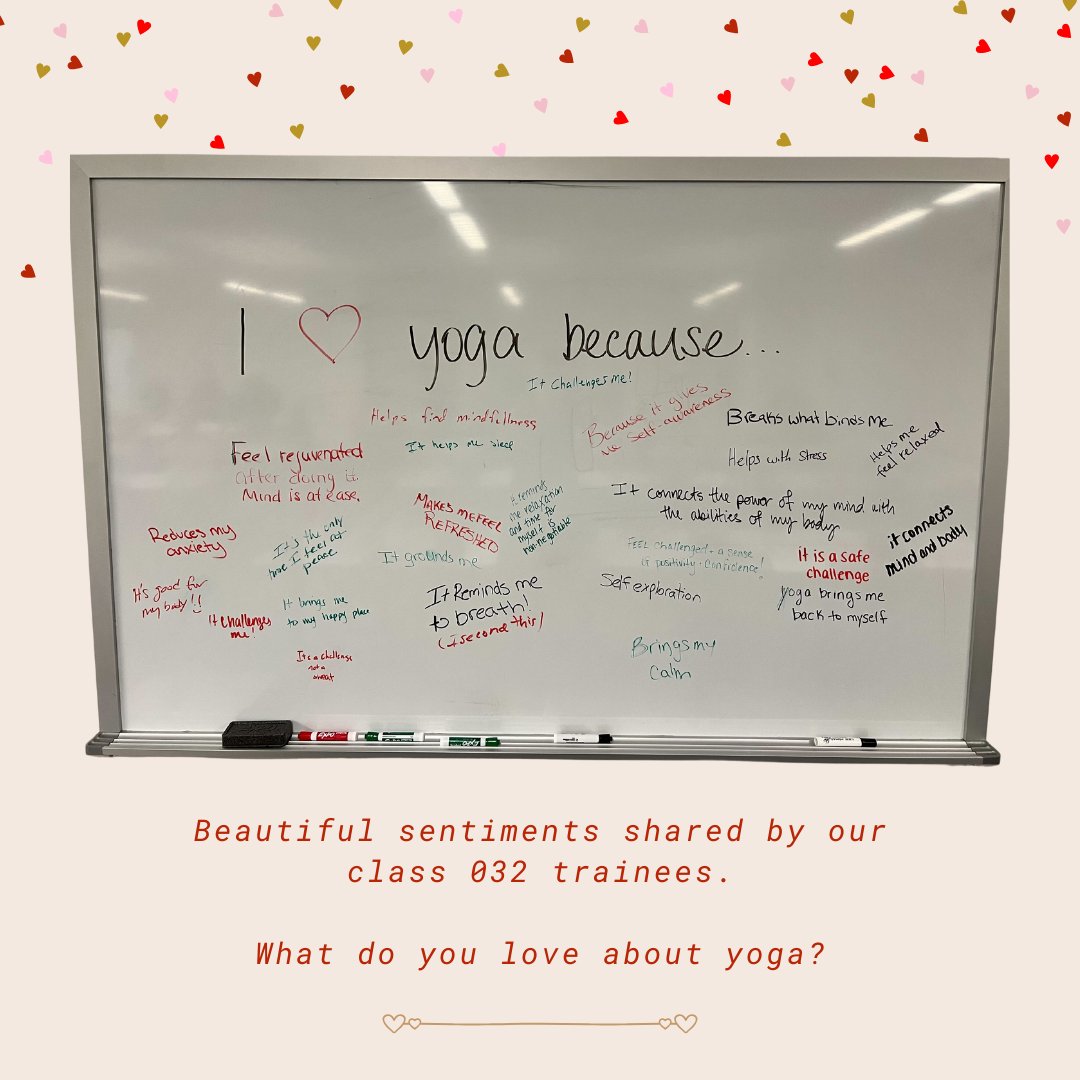 I ♡ yoga because...
It challenges me!
Helps find mindfullness
Because it gives
me self-awareness
Breaks what binds me
Feel rejuvenated
After doing it.
Mind is at ease.
It helps me sleep
Helps with stress
Helps me
feel relaxed
Makes me feel
REFRESHED
it reminds
me relaxation
and time for
myself is
non-negotiable
It connects the power of my mind with
the abilities of my body
it connects
mind and body
Reduces my
anxiety
It's the only
time I feel at
peace
It grounds me
FEEL challenged + a sense
of positivity + confidence!
it is a safe
challenge
It's good for
my body!!
it challenges
me!
It brings me
to my happy place
It Reminds me
to breath!
(I second this)
Self exploration
yoga brings me
back to myself
It's a challenge
not a
threat
Brings my
calm
EXPO
EXPO
Beautiful sentiments shared by our
class 032 trainees.
What do you love about yoga?